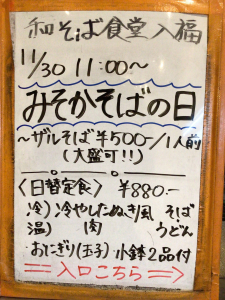 和そば食堂 入福
11/30 11:00〜
みそかそばの日
〜ザルそば ¥500-/1人前
(大盛可!!)
〈日替定食〉 ¥880.-
冷) 冷やしたぬき風 そば
温) 肉 うどん
おにぎり(玉子) 小鉢2品付
入口こちら